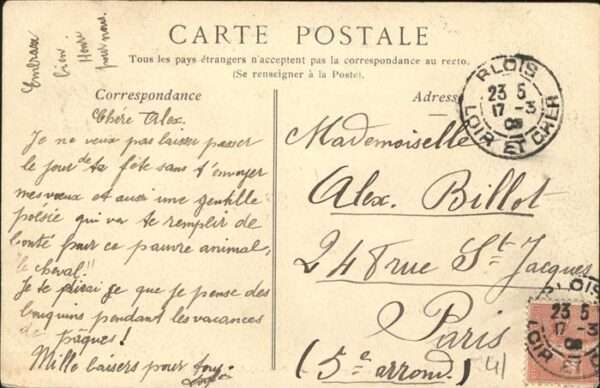 Embrasse
bien
Henri
pour nous.
CARTE POSTALE
Tous les pays étrangers n'acceptent pas la correspondance au recto.
(Se renseigner à la Poste).
Correspondance
Adresse
Chère Alex.
Je ne veux pas laisser passer
le jour de ta fête sans t'envoyer
mes vœux et aussi une gentille
poésie qui va te remplir de
bonté pour ce pauvre animal,
le cheval!!
Je te dirai ce que je pense des
bouquins pendant les vacances
de pâques!
Mille baisers pour
Mademoiselle
Alex. Billot
248 rue St Jacques
Paris
(5e arrond.)
BLOIS
23 5
17 -3
LOIR ET CHER
BLOIS
23 5
17 -3
LOIR